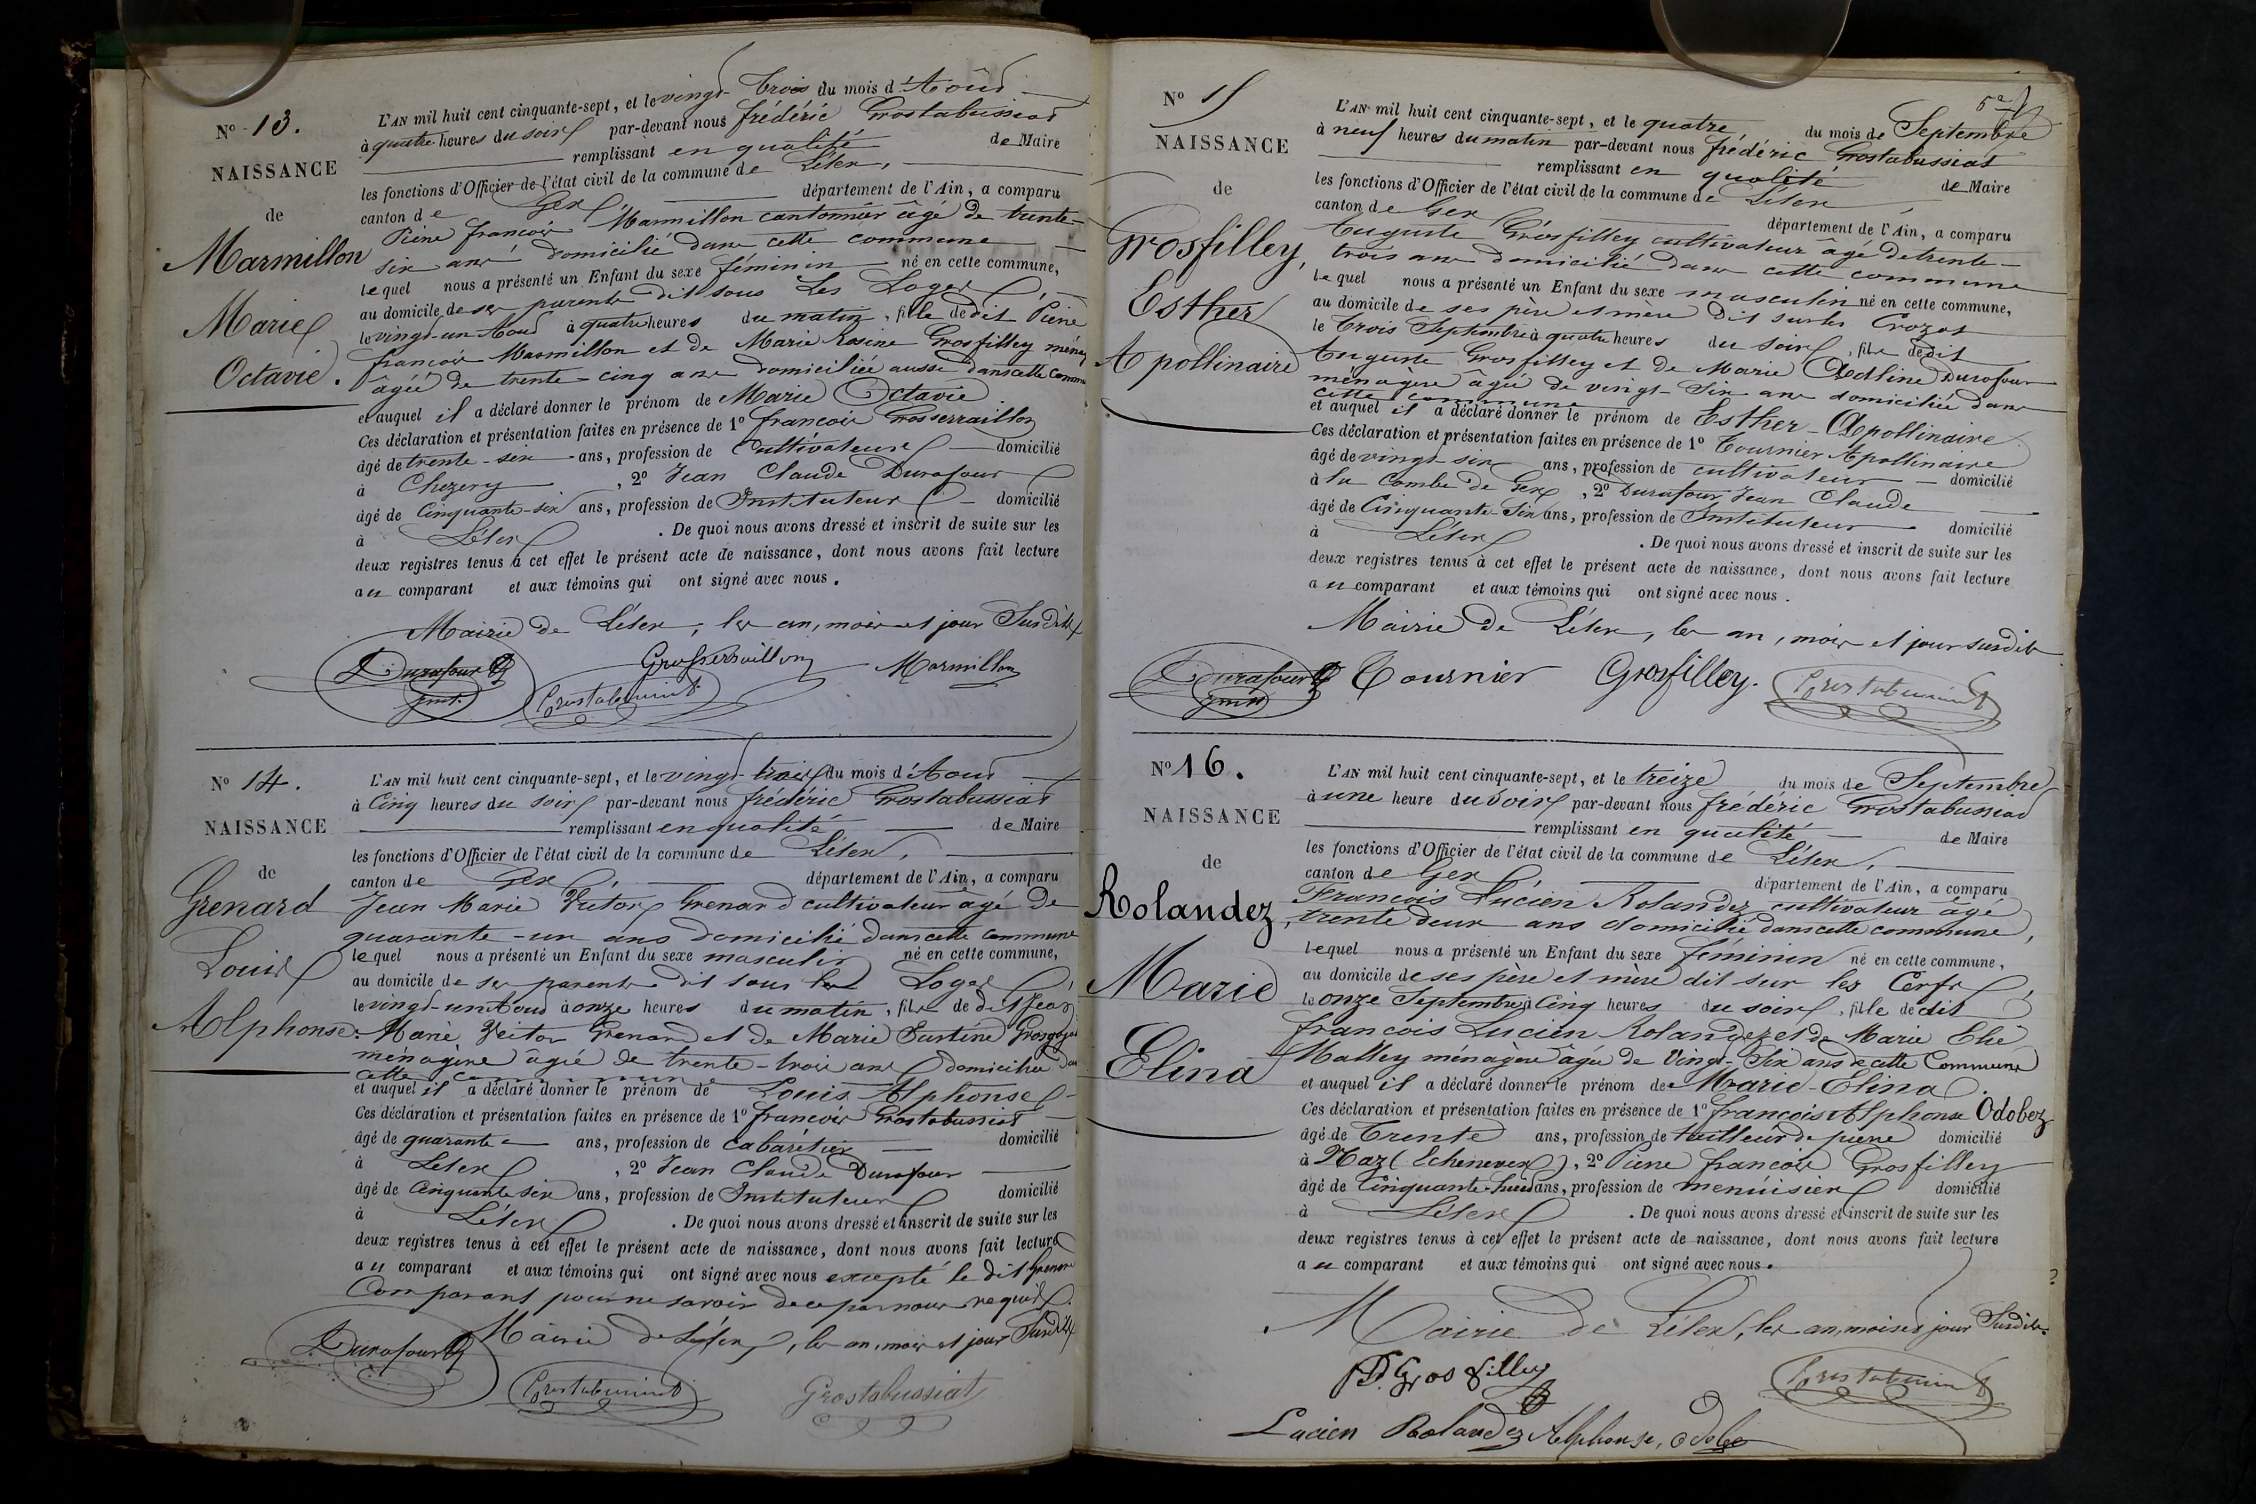 No 13.
NAISSANCE
de
Marmillon
Marie
Octavie.
L'AN mil huit cent cinquante-sept, et le vingt-trois du mois d'Aoûd
à quatre heures du soir par-devant nous frédéric Grostabussiat
remplissant en qualité de Maire
les fonctions d'Officier de l'état civil de la commune de Lélex,
canton de Gex département de l'Ain, a comparu
Pierre françois Marmillon cantonnier âgé de trente-
six ans domicilié dans cette commune
lequel nous a présenté un Enfant du sexe féminin né en cette commune,
au domicile de ses parents dit sous Les Loges,
le vingt-un Aoud à quatre heures du matin, fille dedit Pierre
françois Marmillon et de Marie Rosine Grosfilley ménag
âgée de trente-cinq ans domiciliée aussi dans cette Commu
et auquel il a déclaré donner le prénom de Marie Octavie
Ces déclaration et présentation faites en présence de 1o françois Grosserraillon
âgé de trente-six ans, profession de Cultivateur domicilié
à Chezery, 2o Jean Claude Durafour
âgé de Cinquante-six ans, profession de Instituteur domicilié
à Lélex. De quoi nous avons dressé et inscrit de suite sur les
deux registres tenus à cet effet le présent acte de naissance, dont nous avons fait lecture
au comparant et aux témoins qui ont signé avec nous.
Mairie de Lélex, les an, mois et jour Susdits
Durafour Grosserraillon Marmillon
Grostabussiat
No 14.
NAISSANCE
de
Grenard
Louis
Alphonse.
L'AN mil huit cent cinquante-sept, et le vingt-trois du mois d'Aoud
à Cinq heures du soir par-devant nous frédéric Grostabussiat
remplissant en qualité de Maire
les fonctions d'Officier de l'état civil de la commune de Lélex,
canton de Gex, département de l'Ain, a comparu
Jean Marie Victor Grenard cultivateur âgé de
quarante-un ans domicilié dans cette commune
lequel nous a présenté un Enfant du sexe masculin né en cette commune,
au domicile de ses parents dit sous les Loges,
le vingt-un Aoud à onze heures du matin, fils de dit Jean
Marie Victor Grenard et de Marie Justine
ménagère âgée de trente-trois ans domiciliée dans
cette commune
et auquel il a déclaré donner le prénom de Louis Alphonse
Ces déclaration et présentation faites en présence de 1o françois Grostabussiat
âgé de quarante ans, profession de Cabarétier domicilié
à Lelex, 2o Jean Claude Durafour
âgé de Cinquante six ans, profession de Instituteur domicilié
à Lélex. De quoi nous avons dressé et inscrit de suite sur les
deux registres tenus à cet effet le présent acte de naissance, dont nous avons fait lecture
au comparant et aux témoins qui ont signé avec nous excepté le dit Grenard
Comparant pour ne savoir de ce par nous requis.
Mairie de Lélex, les an, mois et jour Susdits
Durafour
Grostabussiat Grostabussiat
No 15
NAISSANCE
de
Grosfilley,
Esther
Apollinaire
L'AN mil huit cent cinquante-sept, et le quatre du mois de Septembre
à neuf heures du matin par-devant nous frédéric Grostabussiat
remplissant en qualité de Maire
les fonctions d'Officier de l'état civil de la commune de Lélex,
canton de Gex département de l'Ain, a comparu
Auguste Grosfilley cultivateur âgé de trente-
trois ans domicilié dans cette commune
lequel nous a présenté un Enfant du sexe masculin né en cette commune,
au domicile de ses père et mère dit sur les Crozat
le trois Septembre à quatre heures du soir, fils dedit
Auguste Grosfilley et de Marie Adeline Durafour
ménagère âgée de vingt-six ans domiciliée dans
cette commune
et auquel il a déclaré donner le prénom de Esther-Apollinaire
Ces déclaration et présentation faites en présence de 1o Tournier Apollinaire
âgé de vingt-six ans, profession de cultivateur domicilié
à la Combe de Gex, 2o Durafour Jean Claude
âgé de Cinquante-six ans, profession de Instituteur domicilié
à Lélex. De quoi nous avons dressé et inscrit de suite sur les
deux registres tenus à cet effet le présent acte de naissance, dont nous avons fait lecture
au comparant et aux témoins qui ont signé avec nous.
Mairie de Lélex, les an, mois et jour susdits
Durafour Tournier Grosfilley. Grostabussiat
No 16.
NAISSANCE
de
Rolandez,
Marie
Elina
L'AN mil huit cent cinquante-sept, et le treize du mois de Septembre
à une heure du soir par-devant nous frédéric Grostabussiat
remplissant en qualité de Maire
les fonctions d'Officier de l'état civil de la commune de Lélex,
canton de Gex département de l'Ain, a comparu
François Lucien Rolandez cultivateur âgé
trente deux ans domicilié dans cette commune,
lequel nous a présenté un Enfant du sexe féminin né en cette commune,
au domicile de ses père et mère dit sur les Cerfs,
le onze Septembre à Cinq heures du soir, fille dedit
françois Lucien Rolandez et de Marie Elie
Malley ménagère âgée de Vingt-Six ans de cette Commune
et auquel il a déclaré donner le prénom de Marie-Elina.
Ces déclaration et présentation faites en présence de 1o françois Alphonse Odobez
âgé de Trente ans, profession de tailleur de pierre domicilié
à Naz (Echenevex), 2o Pierre françois Grosfilley
âgé de Cinquante-huit ans, profession de menuisier domicilié
à Lélex. De quoi nous avons dressé et inscrit de suite sur les
deux registres tenus à cet effet le présent acte de naissance, dont nous avons fait lecture
au comparant et aux témoins qui ont signé avec nous.
Mairie de Lélex, les an, mois et jour Susdits.
Grosfilley Grostabussiat
Lucien Rolandez Alphonse, Odobez